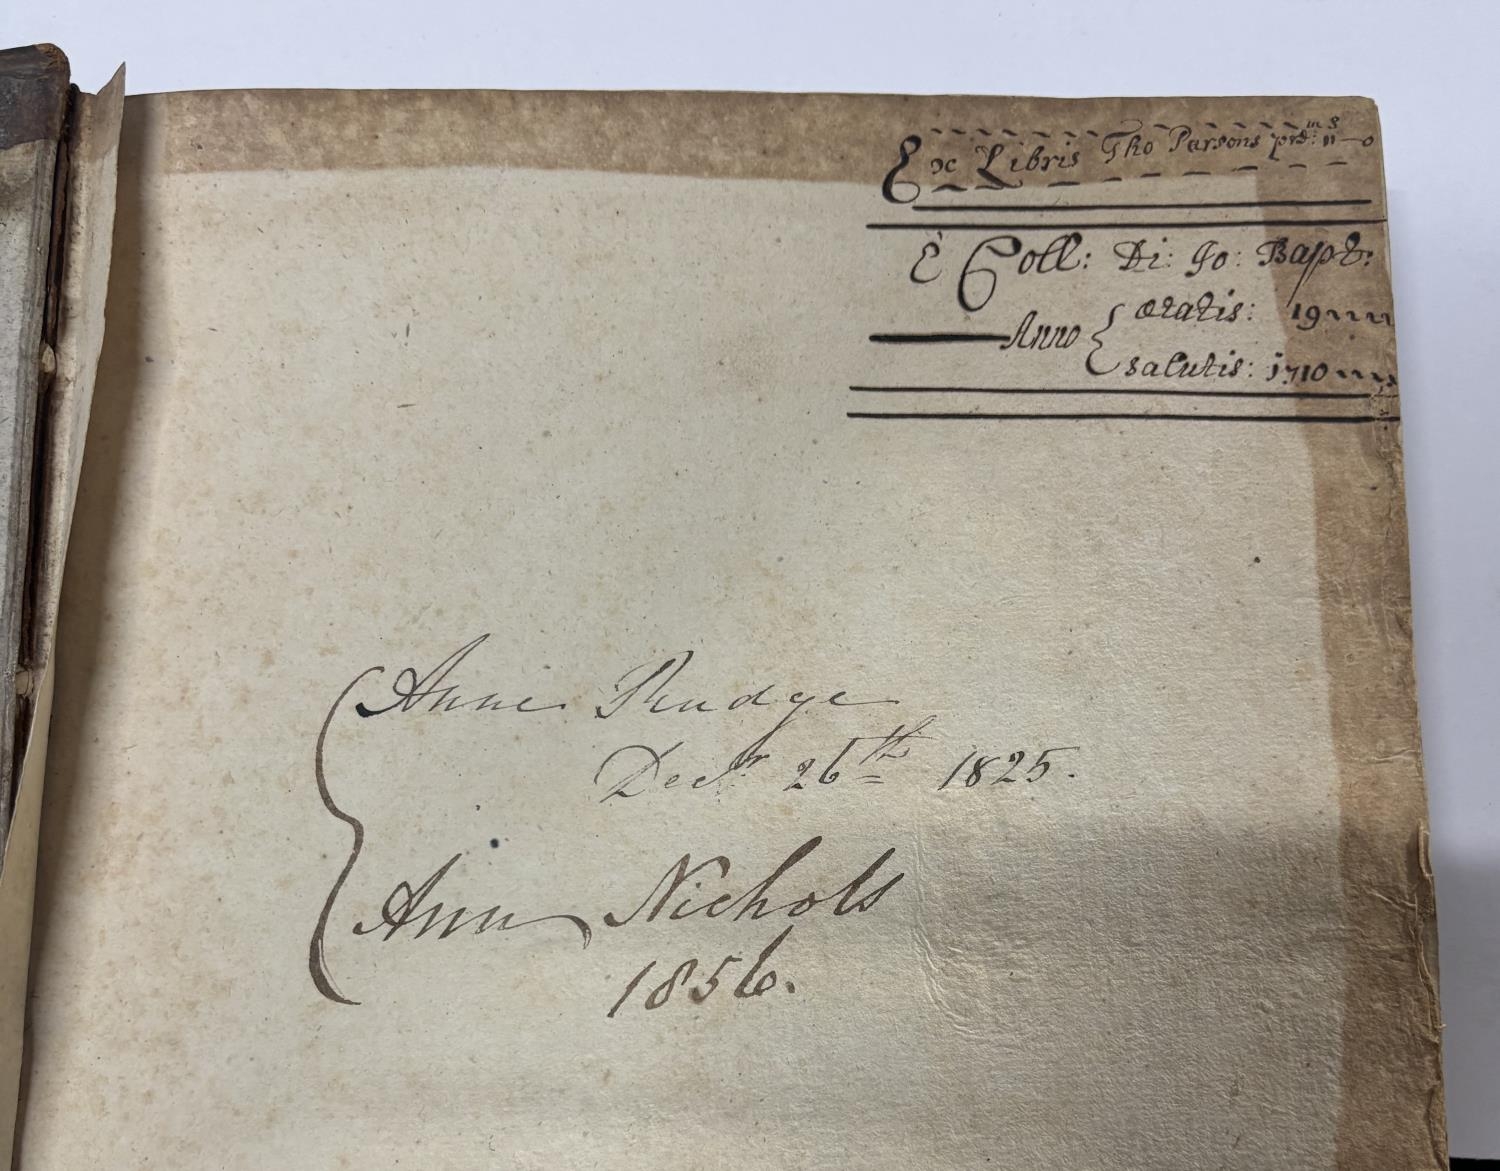 Ex Libris Tho Parsons prd: 11 - 0
E Coll: Di: Jo: Bapt:
Anno
ætatis: 19
salutis: 1710
Anne Rudge
Decr 26th 1825.
Ann Nichols
1856.